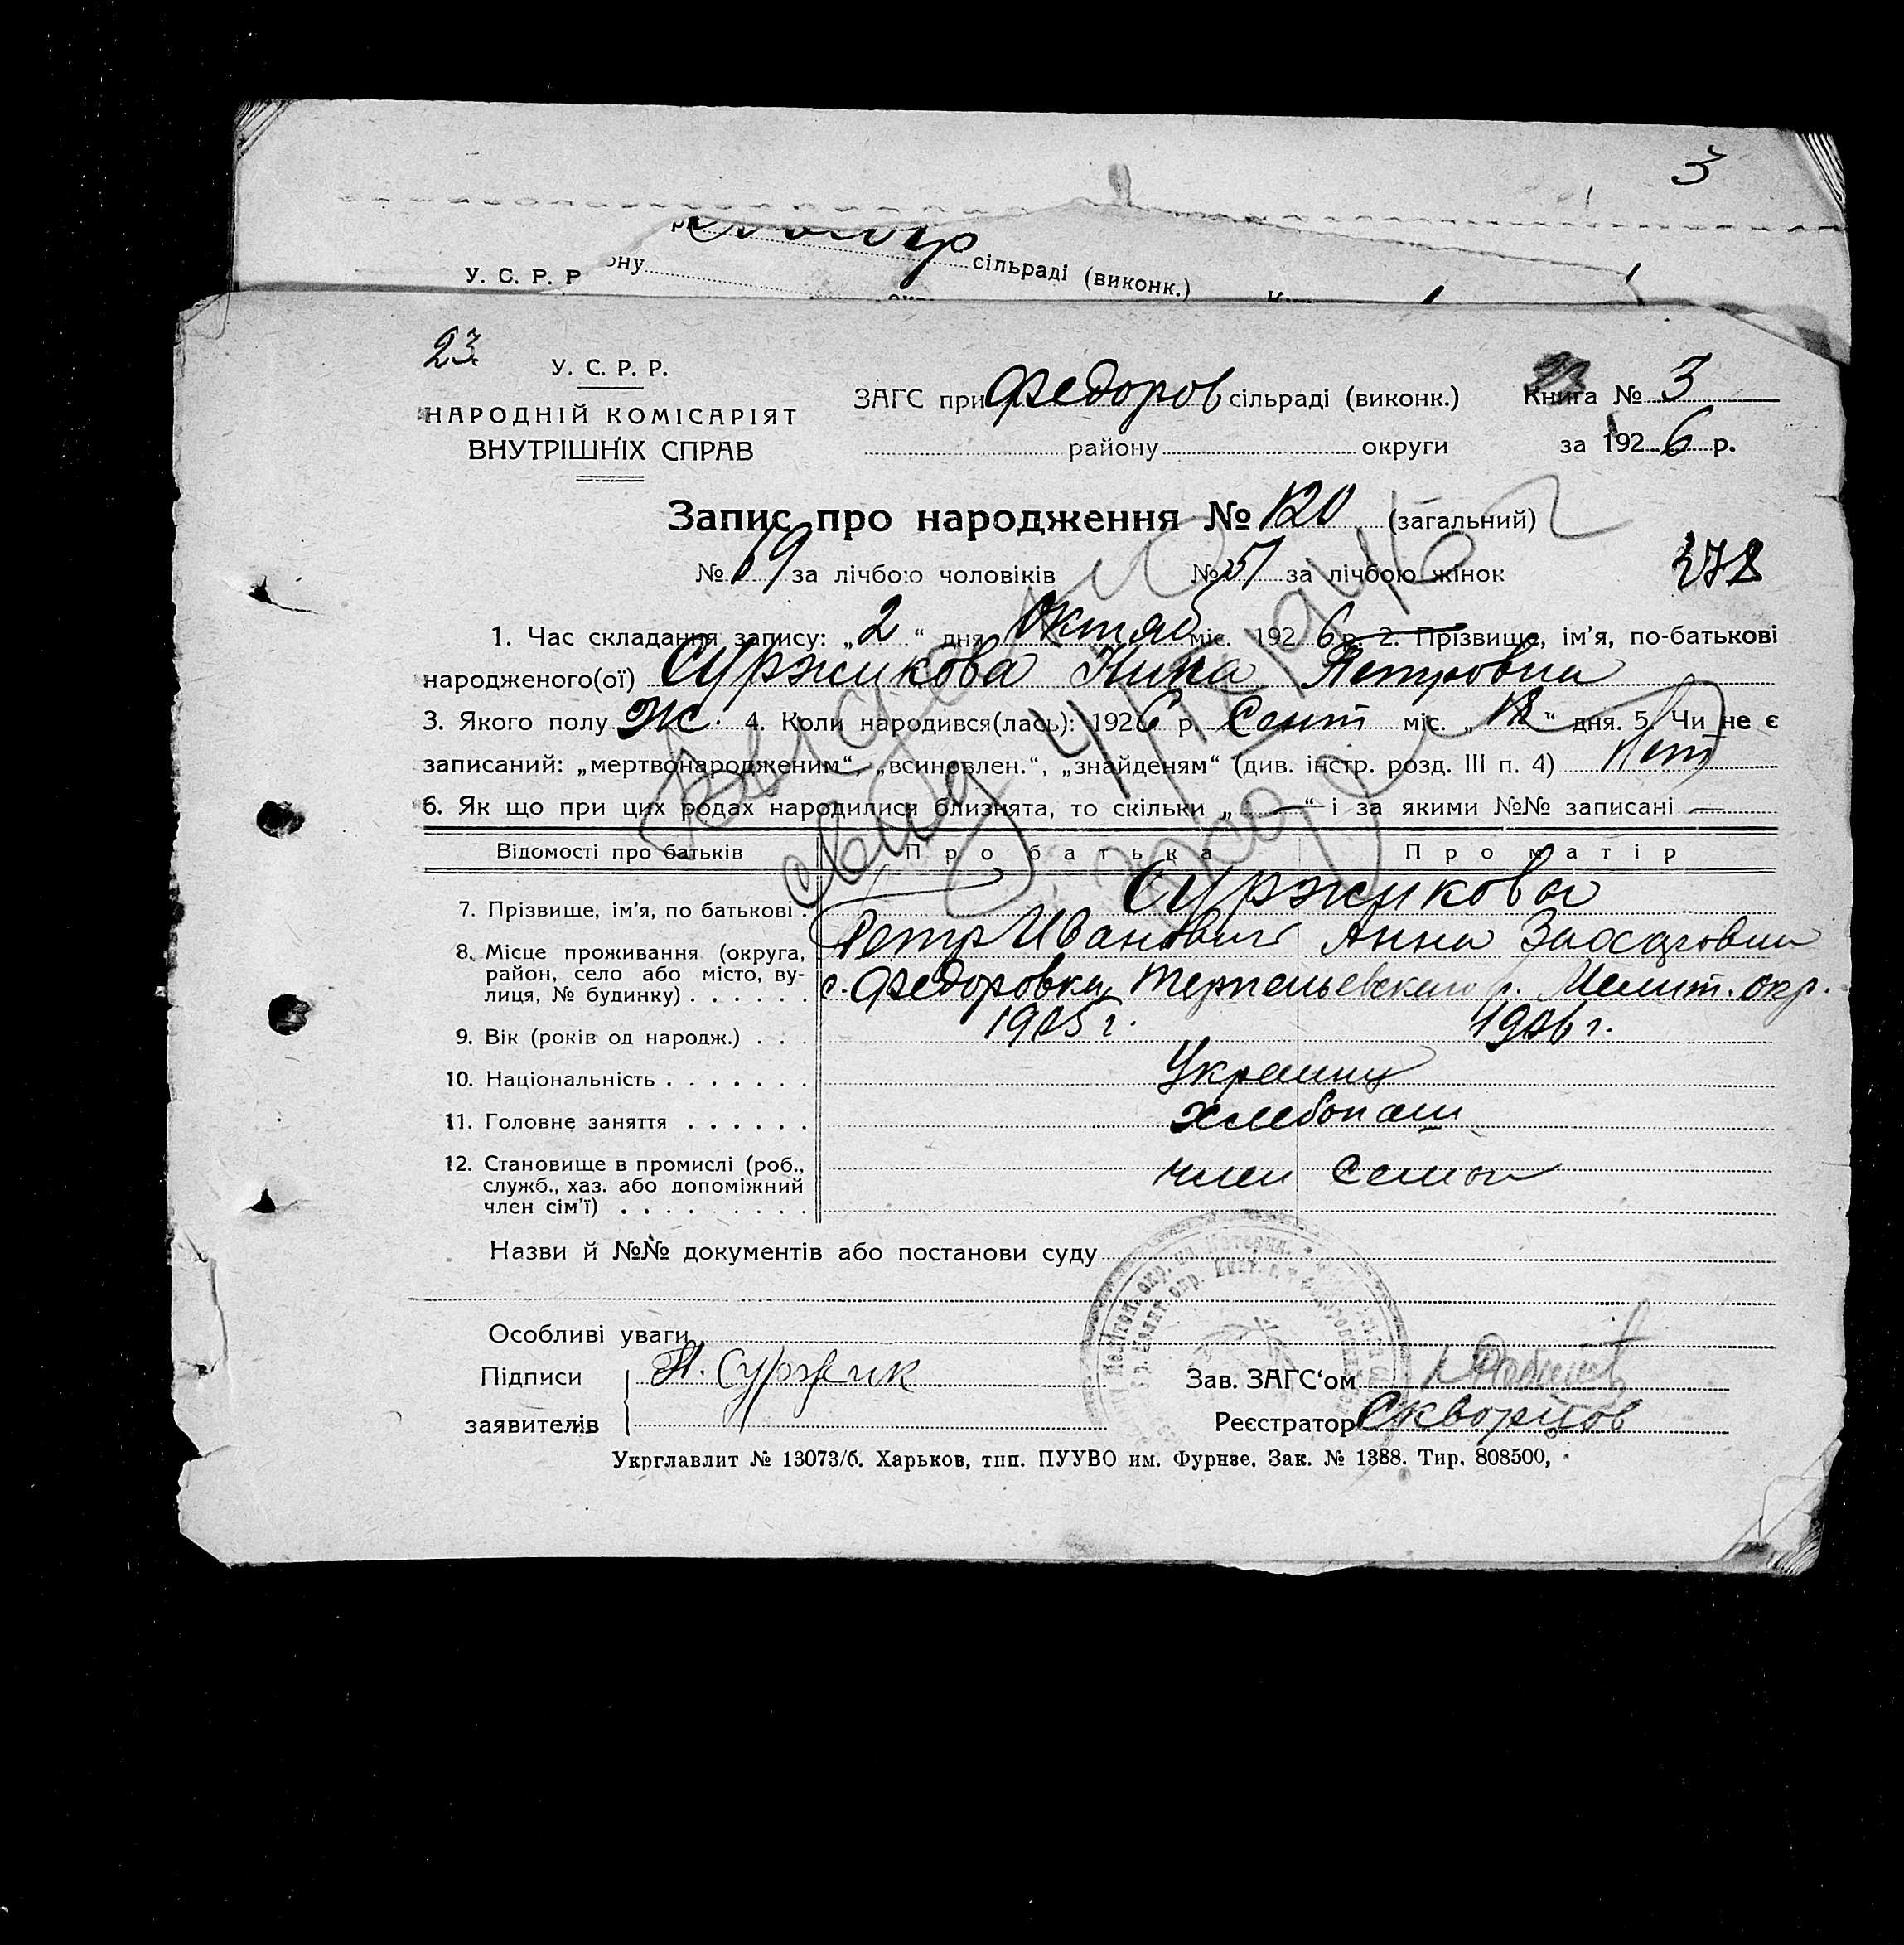 3
сільраді (виконк.)
У. С. Р. Р
ону
23
У. С. Р. Р.
НАРОДНІЙ КОМІСАРІЯТ
ВНУТРІШНІХ СПРАВ
ЗАГС при Федоров сільраді (виконк.)
району округи
Книга № 3
за 1926 р.
Запис про народження № 120 (загальний)
№ 69 за лічбою чоловіків № 51 за лічбою жінок
278
1. Час складання запису: „2“ дня Октяб міс. 1926 р. 2. Прізвище, ім’я, по-батькові
народженого(ої) Суржикова Нина Петровна
3. Якого полу Ж. 4. Коли народився(лась): 1926 р. Сент міс. „18“ дня. 5. Чи не є
записаний: „мертвонародженим“, „всиновлен.“, „знайденям“ (див. інстр. розд. III п. 4) Нет
6. Як що при цих родах народилися близнята, то скільки „—“ і за якими №№ записані —
Відомості про батьків Про батька Про матір
Суржикови
7. Прізвище, ім’я, по батькові .
Петр Иванович Анна
8. Місце проживання (округа,
район, село або місто, ву-
лиця, № будинку) . . . . . .
с. Федоровка, р. Мелит. окр.
9. Вік (років од народж.) . . . 1905 г. 1906 г.
10. Національність . . . . . . . Украинц
11. Головне заняття . . . . . . Хлебопаш
12. Становище в промислі (роб.,
служб., хаз. або допоміжний
член сім’ї) . . . . . . . . .
член Семьи
Назви й №№ документів або постанови суду
Особливі уваги
Підписи
заявителів
П. Суржик
Зав. ЗАГС‘ом
Реєстратор Скворцов
Укрглавлит № 13073/б. Харьков, тип. ПУУВО им. Фурнзе. Зак. № 1388. Тир. 808500,